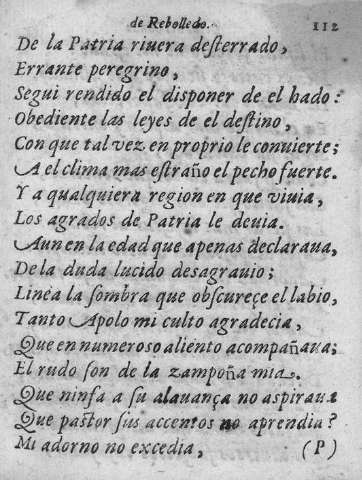 de Rebolledo. 112
De la Patria riuera desterrado,
Errante peregrino,
Segui rendido el disponer de el hado:
Obediente las leyes de el destino,
Con que tal vez en proprio le conuierte;
A el clima mas estraño el pecho fuerte.
Y a qualquiera region en que viuia,
Los agrados de Patria le deuia.
Aun en la edad que apenas declaraua,
De la duda lucido desagrauio;
Linea la sombra que obscureçe el labio,
Tanto Apolo mi culto agradecia,
Que en numeroso aliento acompañaua;
El rudo son de la zampoña mia.
Que ninfa a su alauança no aspiraua
Que pastor sus accentos no aprendia?
Mi adorno no excedia, (P)